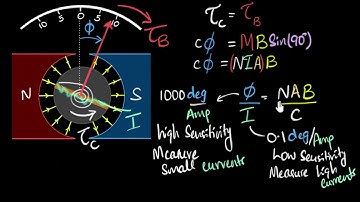 10 5 0 5 10
ϕ
τ_B
N S
I
τ_c
τ_c = τ_B
cϕ = MB Sin(90°)
cϕ = (NIA)B
1000 deg/Amp ← ϕ/I = NAB/c
high Sensitivity
Measure
Small currents
0.1 deg/Amp
Low Sensitivity
Measure high
currents